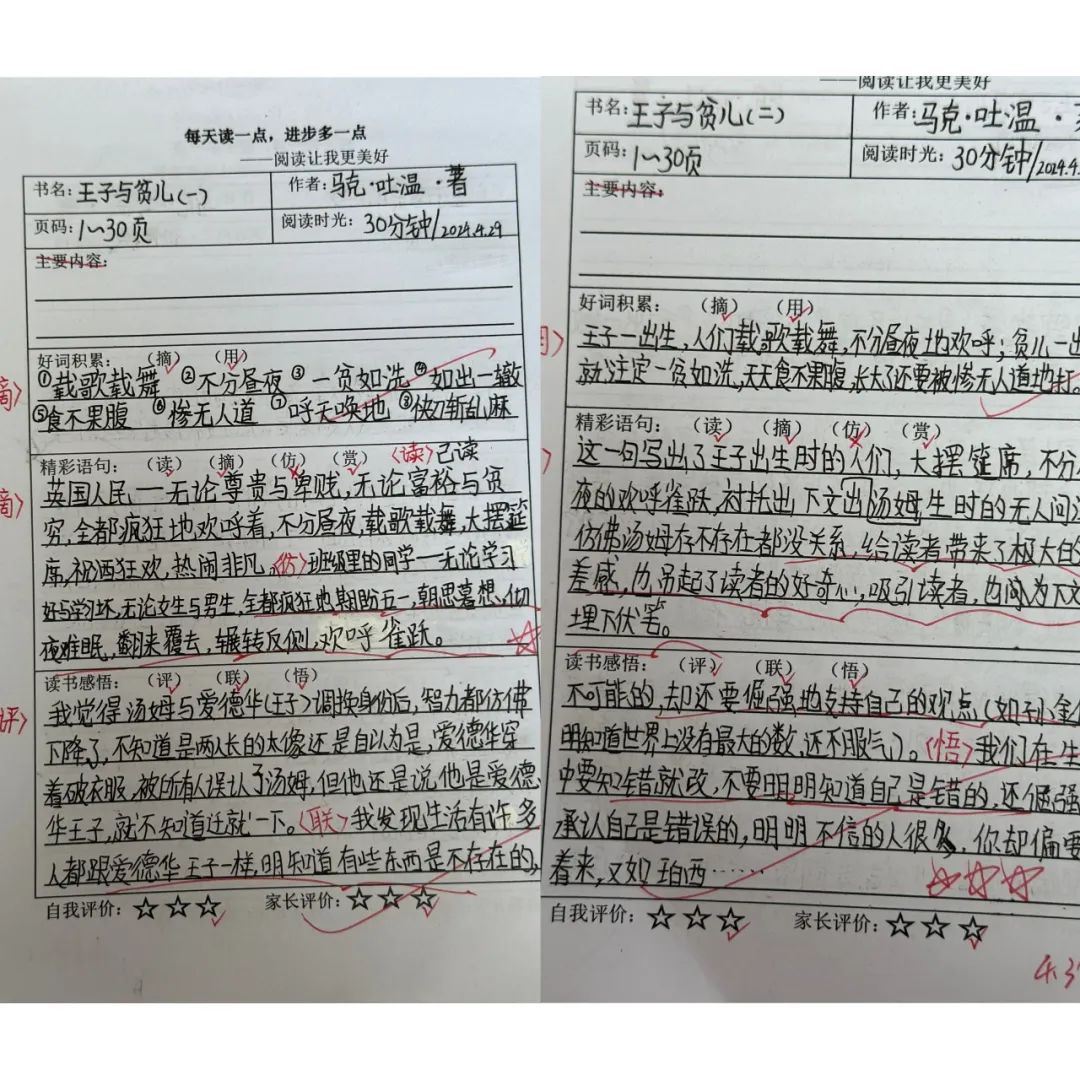 每天读一点，进步多一点
——阅读让我更美好
书名：王子与贫儿(一) 作者：马克·吐温·著
页码：1～30页 阅读时光：30分钟/2024.4.29
主要内容：
好词积累：（摘）（用）
①载歌载舞 ②不分昼夜 ③一贫如洗 ④如出一辙
⑤食不果腹 ⑥惨无人道 ⑦呼天唤地 ⑧快刀斩乱麻
精彩语句：（读）（摘）（仿）（赏）〈读〉已读
英国人民——无论尊贵与卑贱，无论富裕与贫
穷，全都疯狂地欢呼着，不分昼夜，载歌载舞，大摆筵
席，祝酒狂欢，热闹非凡。〈仿〉班级里的同学——无论学习
好与学习坏，无论女生与男生，全都疯狂地期盼五一，朝思暮想，彻
夜难眠，翻来覆去，辗转反侧，欢呼雀跃。
读书感悟：（评）（联）（悟）
评〉
我觉得汤姆与爱德华(王子)调换身份后，智力都仿佛
下降了，不知道是两人长的太像还是自以为是，爱德华穿
着破衣服，被所有人误认了汤姆，但他还是说他是爱德
华王子，就不知道迁就一下。〈联〉我发现生活有许多
人都跟爱德华王子一样，明知道有些东西是不存在的，
自我评价：☆☆☆ 家长评价：☆☆☆
——阅读让我更美好
书名：王子与贫儿(二) 作者：马克·吐温·
页码：1～30页 阅读时光：30分钟/2024.4.
主要内容：
好词积累：（摘）（用）
王子一出生，人们载歌载舞，不分昼夜地欢呼；贫儿一出
就注定一贫如洗，天天食不果腹，长大了还要被惨无人道地打.
精彩语句：（读）（摘）（仿）（赏）
这一句写出了王子出生时的人们，大摆筵席，不分
夜的欢呼雀跃，衬托出下文出汤姆生时的无人问
仿佛汤姆存不存在都没关系，给读者带来了极大的
差感，也吊起了读者的好奇心，吸引读者，也间为下文
埋下伏笔。
读书感悟：（评）（联）（悟）
不可能的，却还要倔强地支持自己的观点（如
明知道世界上没有最大的数，还不服气）。〈悟〉我们在生
中要知错就改，不要明明知道自己是错的，还倔强
承认自己是错误的，明明不信的人很多，你却偏要
着来，又如珀西……
自我评价：☆☆☆ 家长评价：☆☆☆